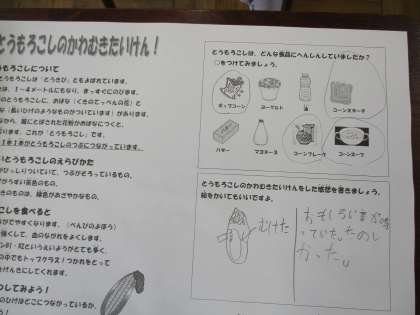 とうもろこしのかわむきたいけん！
もろこしについて
とうもろこしは「とうきび」ともよばれています。
は、1～4メートルにもなり、まっすぐにのびます。
のとうもろこしに、おばな（くきのてっぺんの花）と
な（長いひげのようなものがついています）があります。
ながら、風にとばされた花粉がめばなにつくと、
ります。これが「とうもろこし」です。
1本1本がとうもろこしのつぶにつながっています。
いとうもろこしのえらびかた
がびっしりついていて、つぶがそろっているもの。
がうすい茶色のもの。
きのものは、緑色があざやかなもの。
こしを食べると
がでやすくなります。（べんぴのよぼう）
強くして、血のながれをよくします。
の中でもトップクラス！つかれをとって
げんきにしてくれます。
つしてみよう！
のひげはどこにつながっているか、
とうもろこしは、どんな食品にへんしんしていましたか？
○をつけてみましょう。
ポップコーン
ヨーグルト
油
コーンスターチ
バター
マヨネーズ
コーンフレーク
コーンスープ
とうもろこしのかわむきたいけんをした感想を書きましょう。
絵をかいてもいいですよ。
むけた
おもしろい
っていた。たのし
かった。